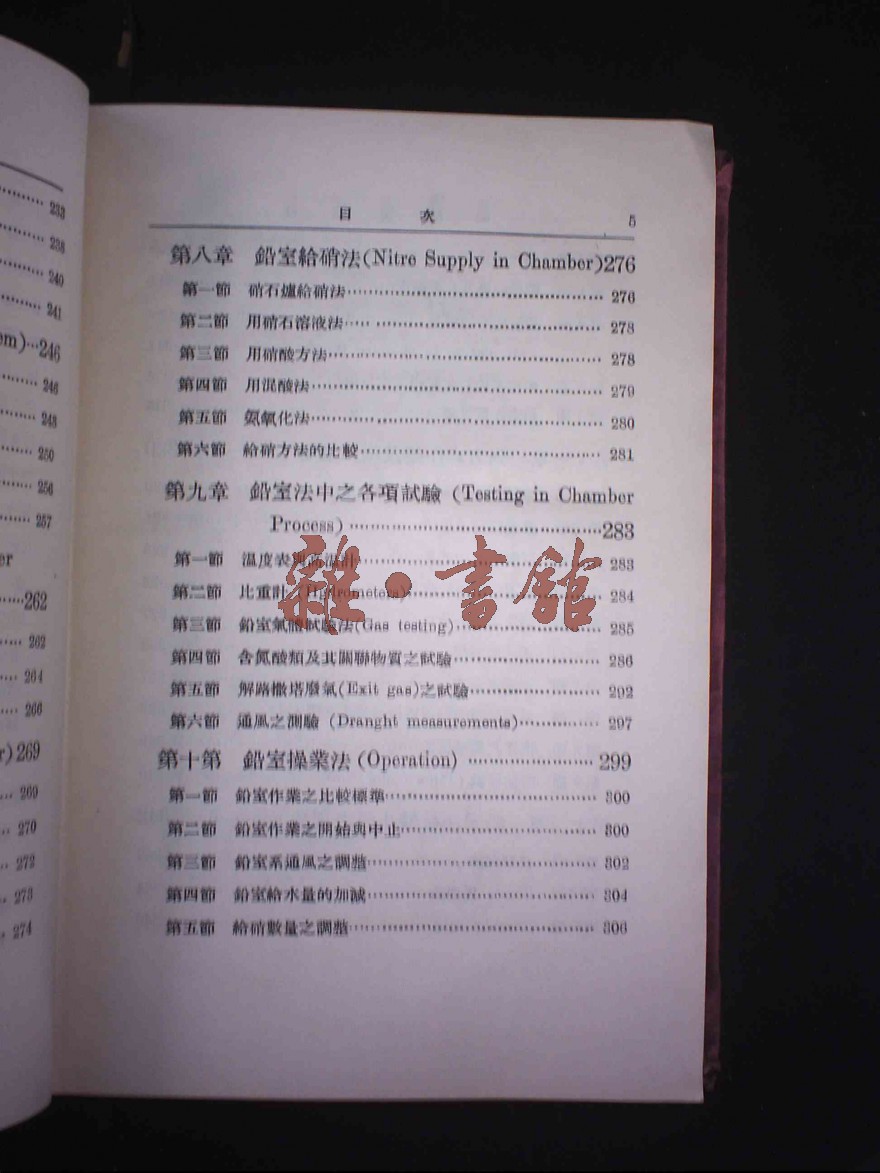 233
238
240
241
em)…246
246
248
250
256
257
er
262
262
264
266
r)269
269
270
272
273
274
目 次 5
第八章 鉛室給硝法(Nitre Supply in Chamber)276
第一節 硝石爐給硝法 276
第二節 用硝石溶液法 278
第三節 用硝酸方法 278
第四節 用混酸法 279
第五節 氨氧化法 280
第六節 給硝方法的比較 281
第九章 鉛室法中之各項試驗 (Testing in Chamber
Process) 283
第一節 溫度表 283
第二節 比重計 (Hydrometers) 284
第三節 鉛室氣體試驗法(Gas testing) 285
第四節 含氮酸類及其關聯物質之試驗 286
第五節 解路撒塔廢氣(Exit gas)之試驗 292
第六節 通風之測驗 (Dranght measurements) 297
第十第 鉛室操業法 (Operation) 299
第一節 鉛室作業之比較標準 300
第二節 鉛室作業之開始與中止 300
第三節 鉛室系通風之調整 302
第四節 鉛室給水量的加減 304
第五節 給硝數量之調整 306
雜·書館